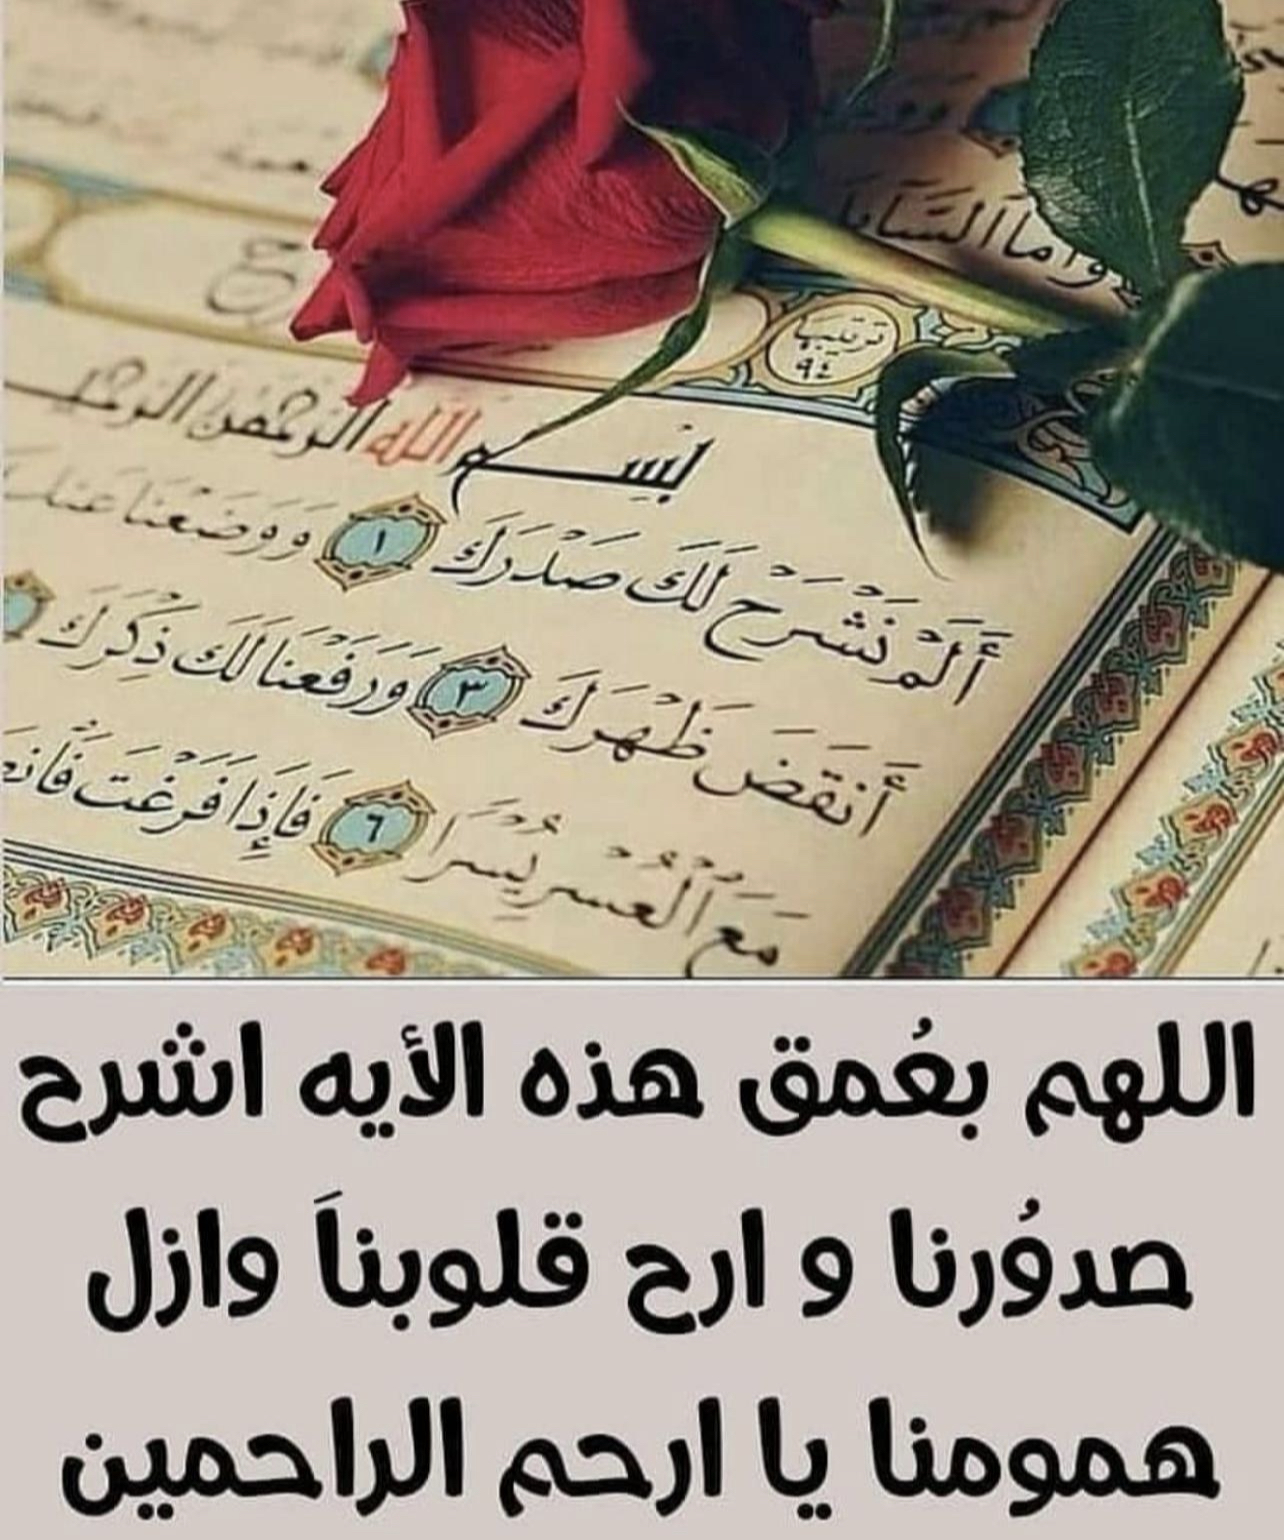 وأما السائل
ترتيبها
٩٤
بسم الله الرحمن الرحيم
أَلَمْ نَشْرَحْ لَكَ صَدْرَكَ ١ وَوَضَعْنَا عَنكَ
أَنقَضَ ظَهْرَكَ ٣ وَرَفَعْنَا لَكَ ذِكْرَكَ
مَعَ ٱلْعُسْرِ يُسْرًا ٦ فَإِذَا فَرَغْتَ فَٱنصَ
اللهم بعُمق هذه الأيه اشرح
صدوُرنا و ارح قلوبناَ وازل
همومنا يا ارحم الراحمين